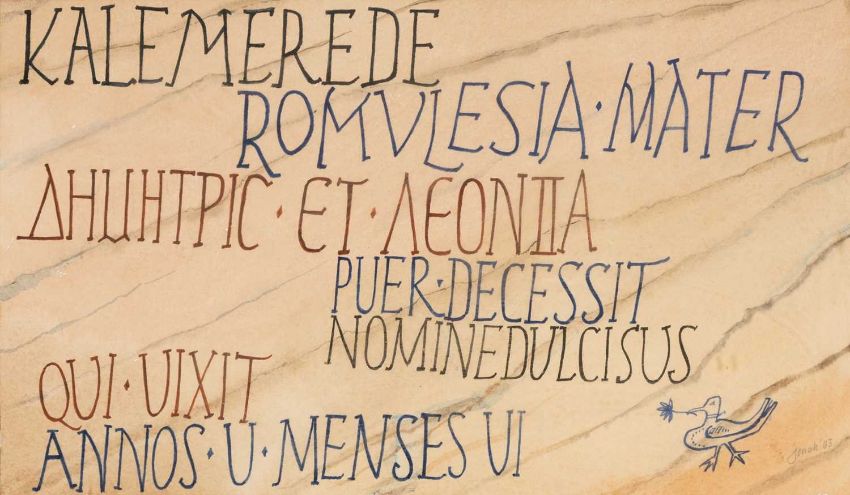 KALEMEREDE
ROMVLESIA·MATER
ΔΗΜΗΤΡΙC · ET · ΛEONIIA
PUER·DECESSIT
NOMINEDULCISUS
QUI·UIXIT
ANNOS·U·MENSES UI